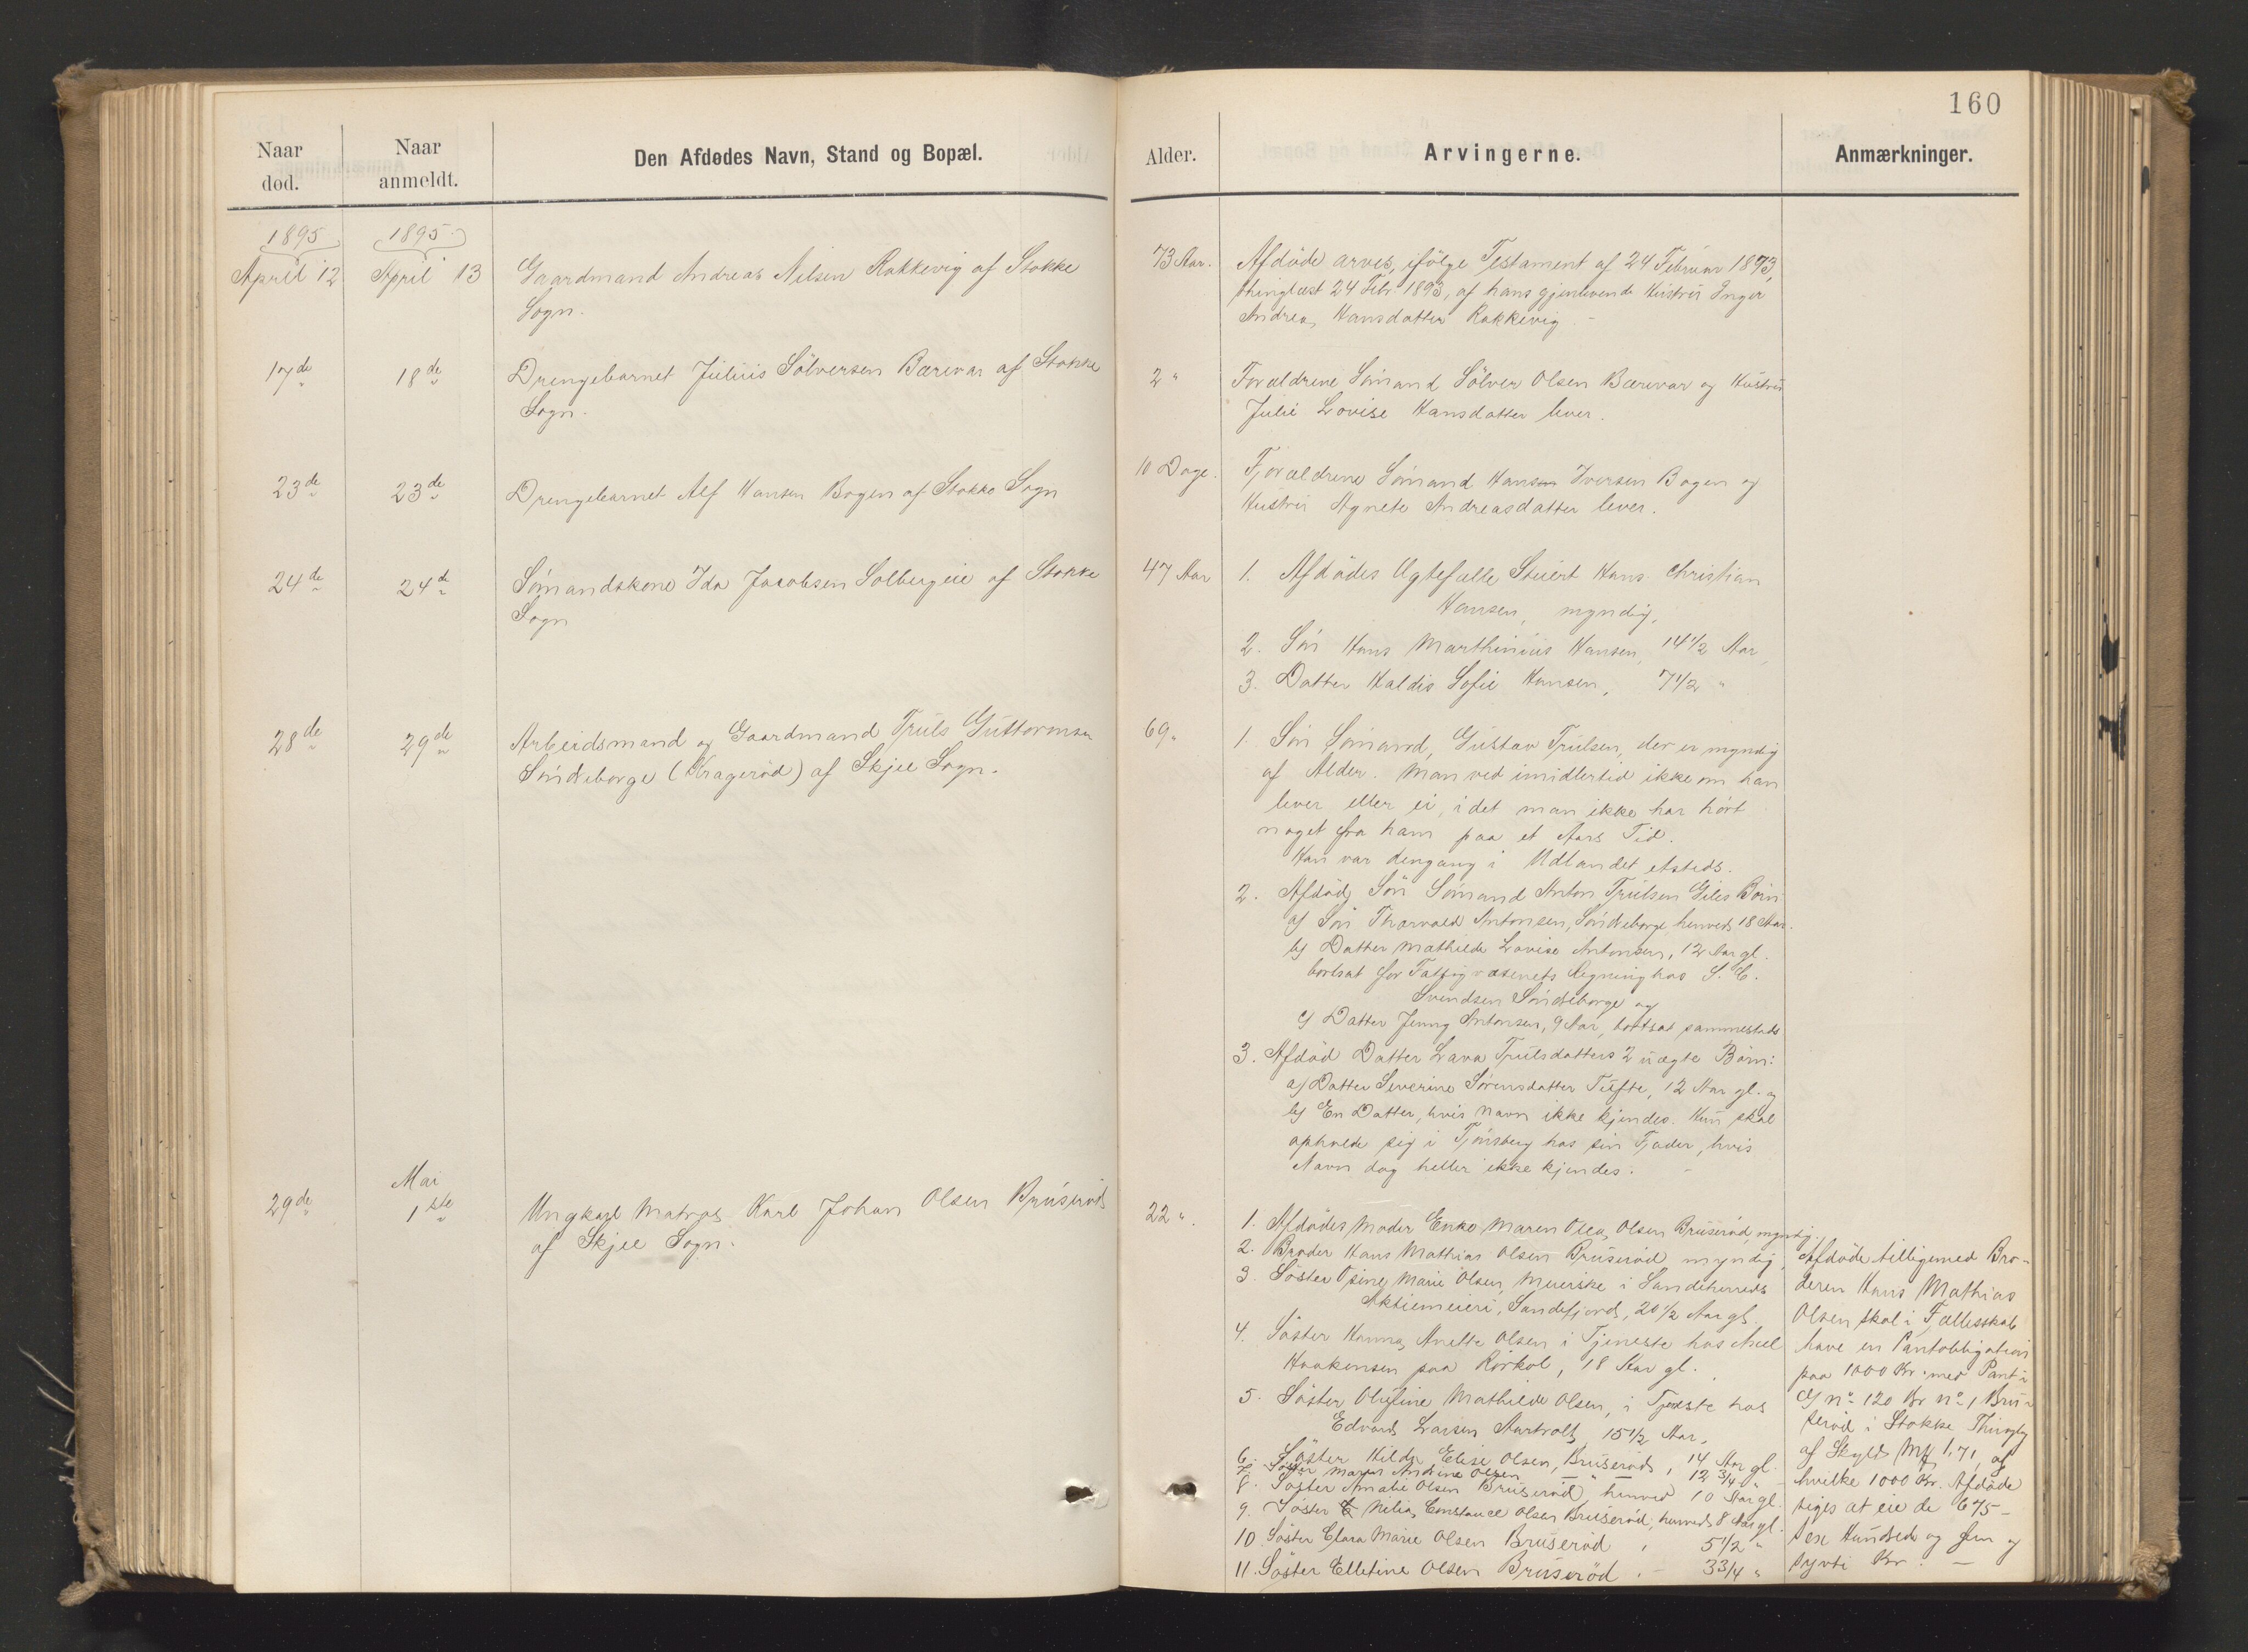 160
Naar død.
Naar anmeldt.
Den Afdødes Navn, Stand og Bopæl.
Alder.
Arvingerne.
Anmærkninger.
1895
1895
April 12
April 13
Gaardmand Andreas Nilsen Rakkevig af Stokke
Sogn.
73 Aar.
Afdöde arves, ifölge Testament af 24 Februar 1893,
thinglæst 24 Febr 1893, af hans gjenlevende Hustru Inger
Andrea Hansdatter Rakkevig
17de
18de
Drengebarnet Julius Sölversen Bærevar af Stokke
Sogn.
2 "
Forældrene Sömand Sölver Olsen Bærevar og Hustru
Julie Lovise Hansdatter lever.
23de
23de
Drengebarnet Alf Hansen Bogen af Stokke Sogn
10 Dage.
Forældrene Sömand Hansen Iversen Bogen og
Hustru Agnete Andreasdatter lever.
24de
24de
Sömandskone Ida Jacobsen Solbergeie af Stokke
Sogn
47 Aar
1. Afdödes Ægtefælle Stuert Hans Christian
Hansen, myndig,
2. Sön Hans Marthinius Hansen, 14 1/2 Aar,
3. Datter Haldis Sofie Hansen, 7 1/2 "
28de
29de
Arbeidsmand og Gaardmand Truls Guttormsen
Söndreborge (Kragerød) af Skjee Sogn.
69 "
1. Sön Sömand, Gustav Trulsen, der er myndig
af Alder. Man ved imidlertid ikke om han
lever eller ei, idet man ikke har hört
noget fra ham paa et Aars Tid.
Han var dengang i Udlandet etsteds.
2. Afdöd Sön Sömand Anton Trulsen Giles Börn
a) Sön Thorvald Antonsen, Söndreborge, henved 18 Aar.
b) Datter Mathilde Lovise Antonsen, 12 Aar gl.
bortsat for Fattigvæsenets Regning hos S. C.
Svendsen Söndreborge og
c) Datter Jenny Antonsen, 9 Aar, bortsat sammesteds
3. Afdöd Datter Lava Trulsdatters 2 uægte Börn:
a) Datter Severine Sørensdatter Tufte, 12 Aar gl. og
b) En Datter, hvis Navn ikke kjendes. Hun skal
opholde sig i Tjönsberg hos sin Fader, hvis
Navn dog heller ikke kjendes. –
29de
Mai
1ste
Ungkarl Matros Karl Johan Olsen Bruseröd
af Skjee Sogn.
22 ".
1. Afdödes Moder Enke Maren Olea Olsen Bruseröd myndig.
2. Broder Hans Mathias Olsen Bruseröd myndig,
3. Söster Marie Olsen, Meierske i Sandeherreds
Aktiemeieri, Sandefjord, 20 1/2 Aar gl.
4. Söster Hanna Anette Olsen i Tjeneste hos
Haakensen paa Rörkol, 18 Aar gl.
5. Söster Olufine Mathilde Olsen, i Tjeneste hos
Edvard Larsen 15 1/2 Aar,
6. Söster Hilda Elise Olsen, Bruseröd, 14 Aar gl.
7. Söster Maria Andrine Olsen — " — 12 3/4 " –
8. Söster Amalie Olsen Bruseröd henved 10 Aar gl.
9. Söster Nelia Constance Olsen Bruseröd, henved 8 Aar gl.
10. Söster Clara Marie Olsen Bruseröd, 5 1/2 "
11. Söster Elletine Olsen Bruseröd. – 3 3/4 "
Afdöde tilligemed Bro-
deren Hans Mathias
Olsen skal i Fællesskab
have en Pantobligation
paa 1000 Kr. med Pant i
G No 120 Br No 1 Bru-
seröd i Stokke Thinglag
af Skyld Mk 1,71, af
hvilke 1000 Kr. Afdöde
siges at eie de 675 –
sex Hundrede og fem og
sytti Kr. —